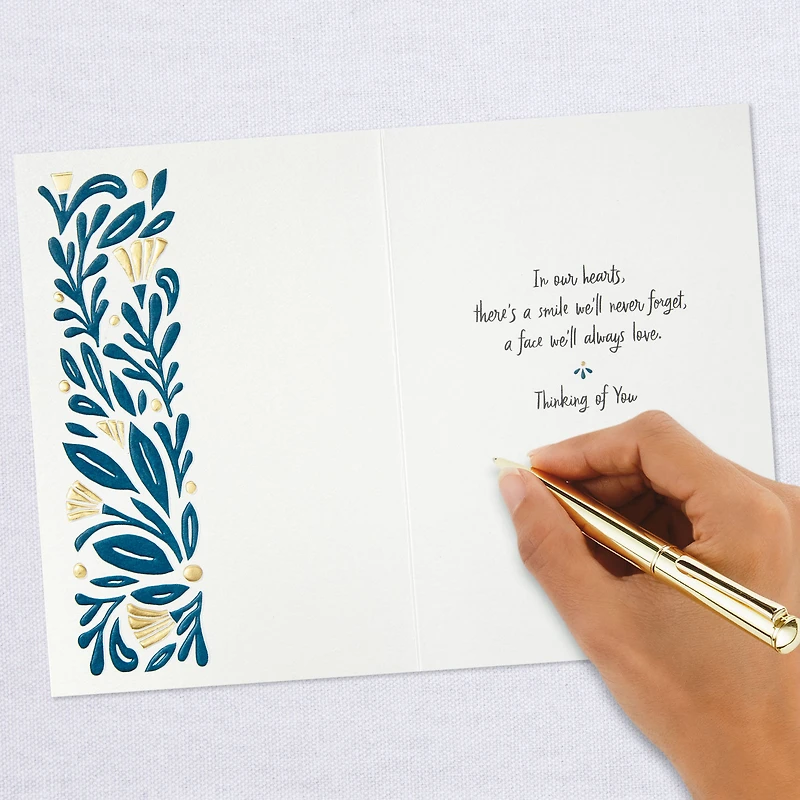 In our hearts,
there's a smile we'll never forget,
a face we'll always love.
Thinking of You